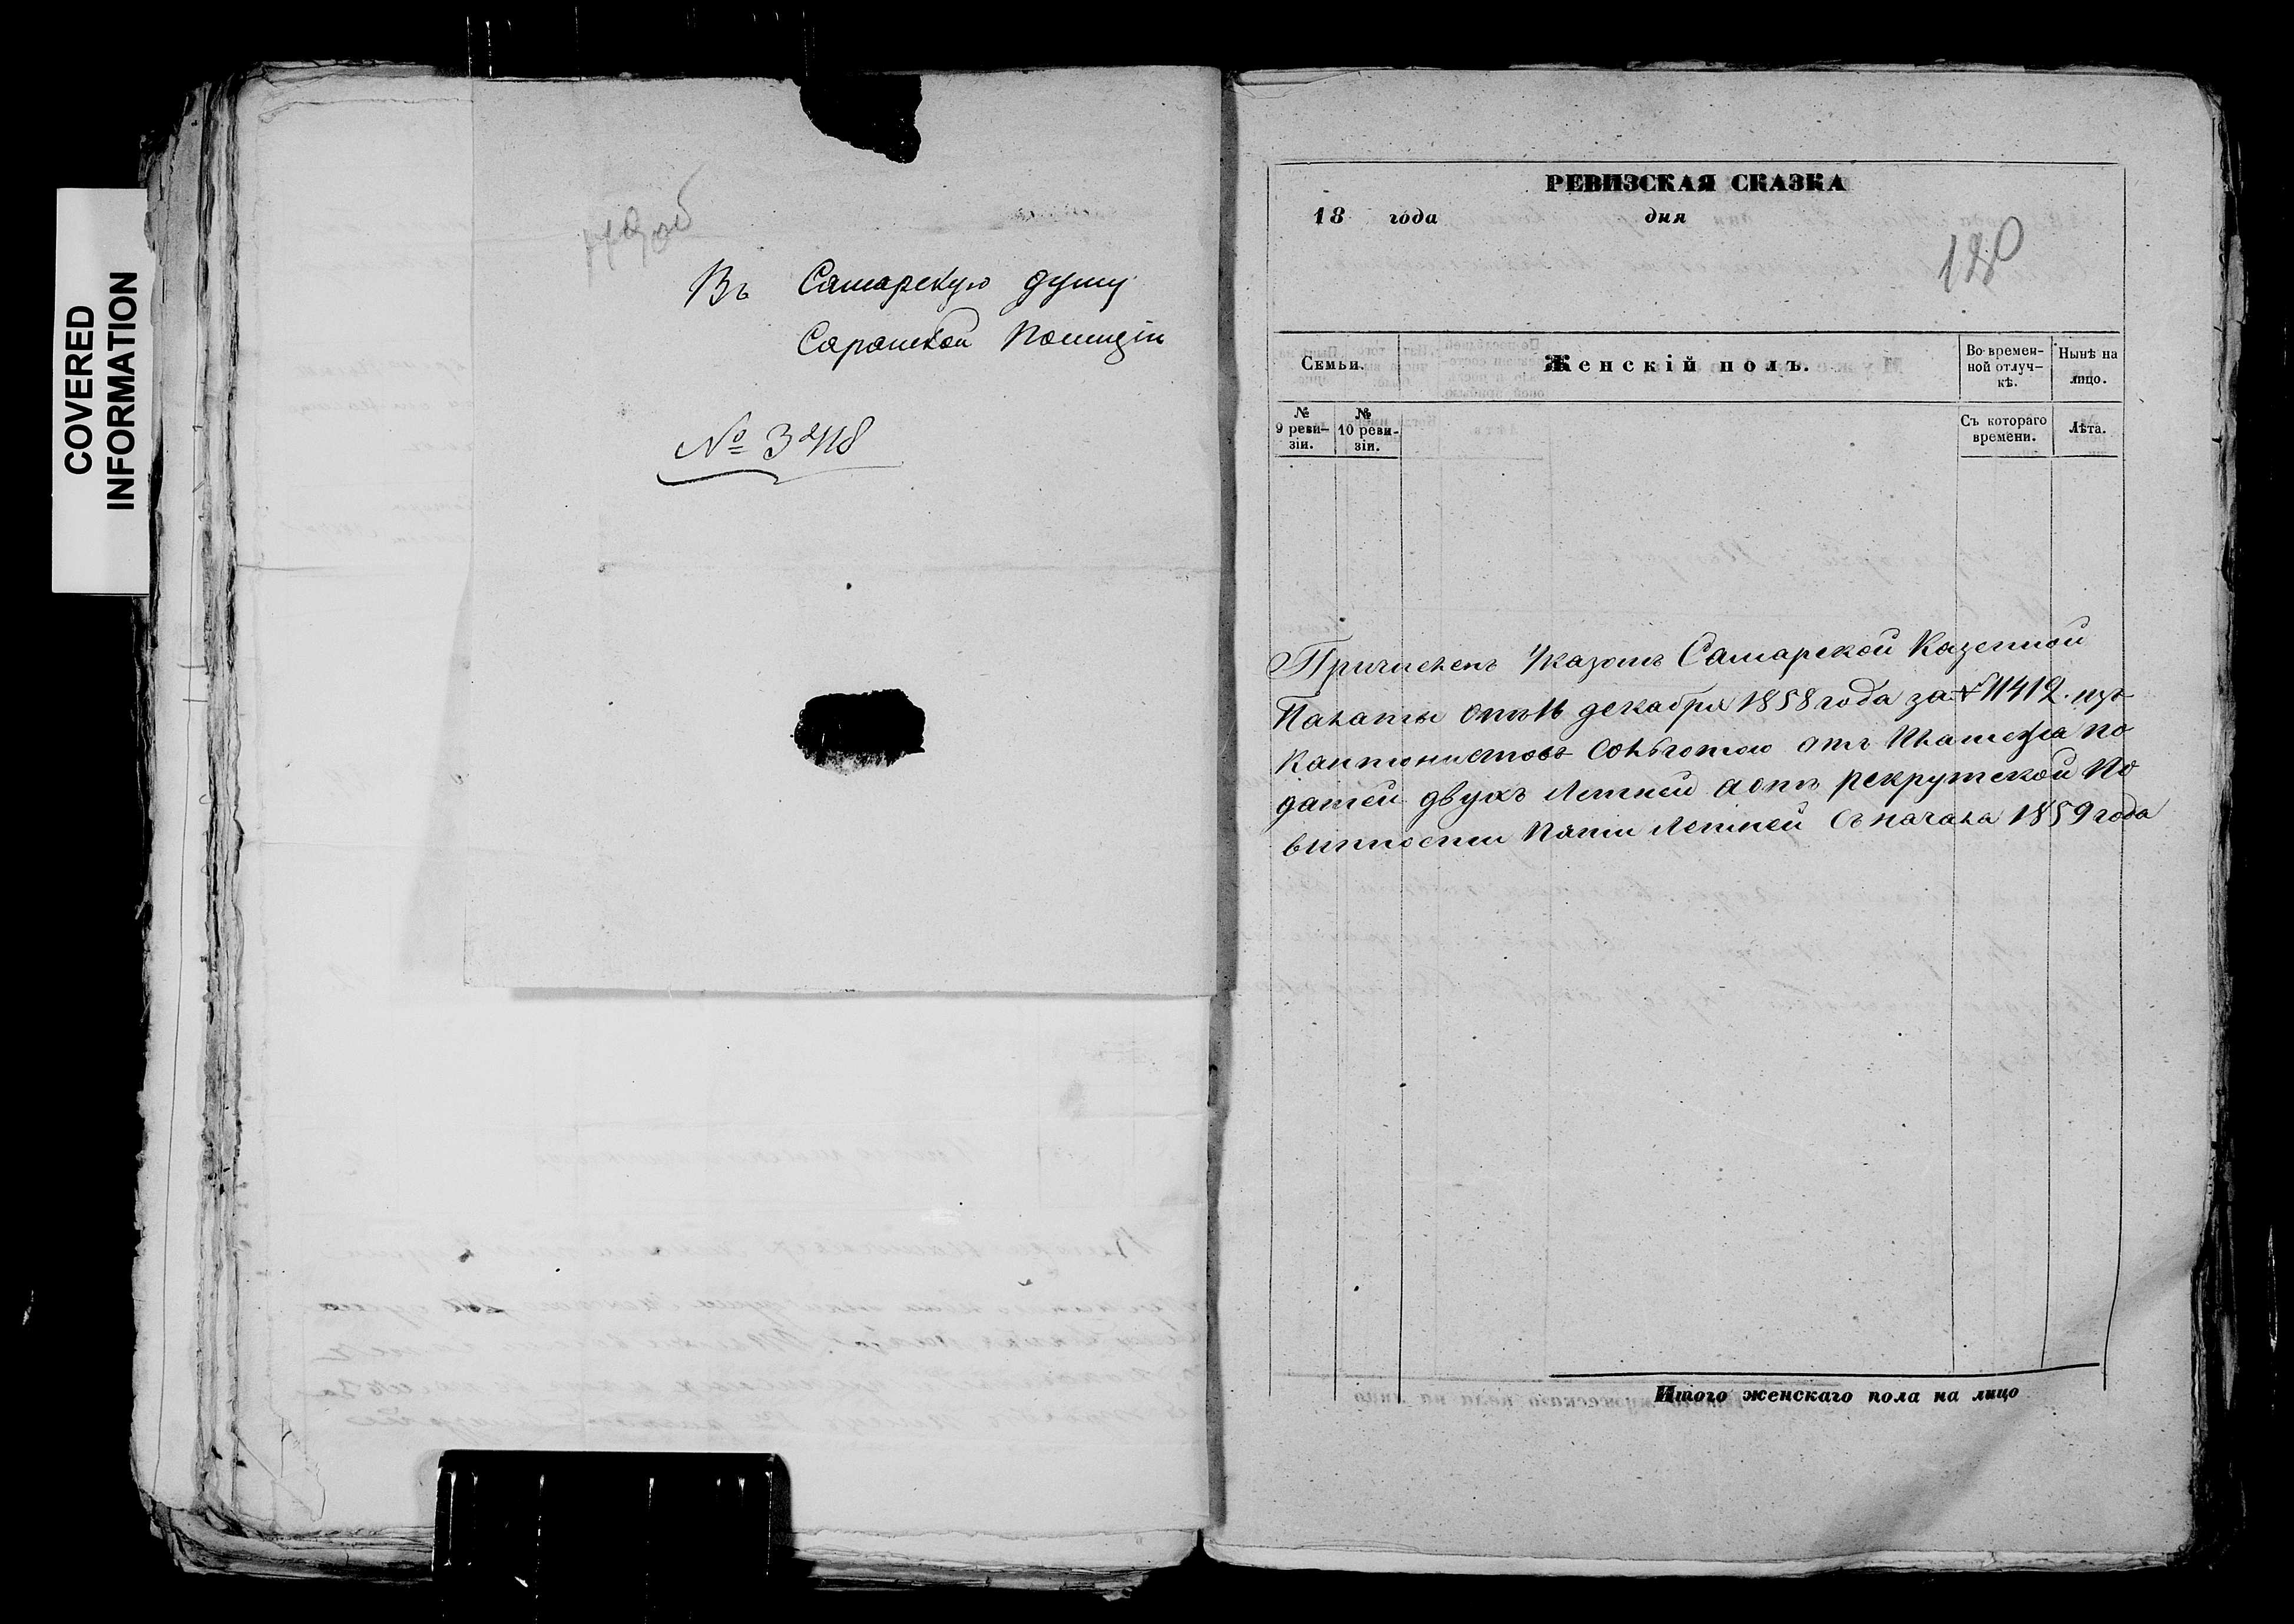 COVERED
INFORMATION
Въ Самарскую думу
Саранской Полиціи
№ 3418
РЕВИЗСКАЯ СКАЗКА
18 года дня
180
Семьи.
Женскій полъ.
Во времен-
ной отлуч-
кѣ.
Нынѣ на
лицо.
№
9 реви-
зіи.
№
10 реви-
зіи.
Съ котораго
времени.
Лѣта.
Причисленъ Указомъ Самарской Казенной
Палаты отъ 16 декабря 1858 года за № 11412. изъ
Кантонистовъ сольготою отъ платежа по
датей двухъ Летней аотъ рекрутской по
винности пяти Летней съ начала 1859 года
Итого женскаго пола на лицо